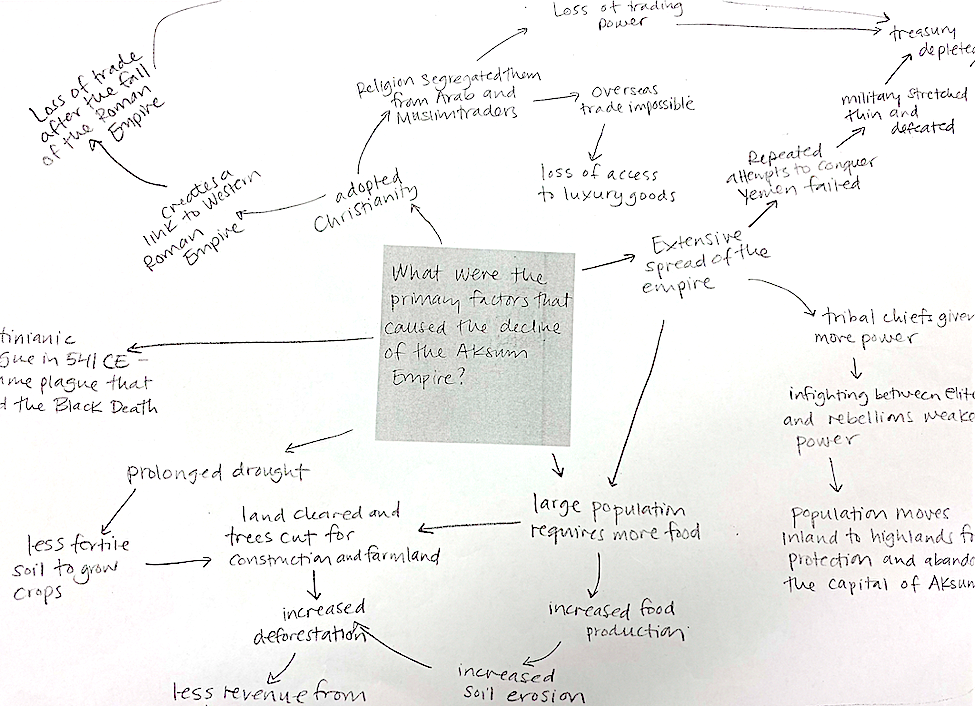 Loss of trading
power
treasury
deplete
Loss of trade
after the fall
of the Roman
Empire
Religion segregated them
from Arab and
Muslim traders
overseas
trade impossible
military stretched
thin and
defeated
loss of access
to luxury goods
Repeated
attempts to conquer
Yemen failed
creates a
link to Western
Roman
Empire
adopted
Christianity
Extensive
spread of the
empire
What were the
primary factors that
caused the decline
of the Aksum
Empire?
tinianic
gue in 541 CE -
me plague that
d the Black Death
tribal chiefs given
more power
infighting between elite
and rebellions weake
power
prolonged drought
land cleared and
trees cut for
construction and farmland
large population
requires more food
population moves
inland to highlands fo
protection and abando
the capital of Aksum
less fertile
soil to grow
crops
increased
deforestation
increased food
production
increased
soil erosion
less revenue from